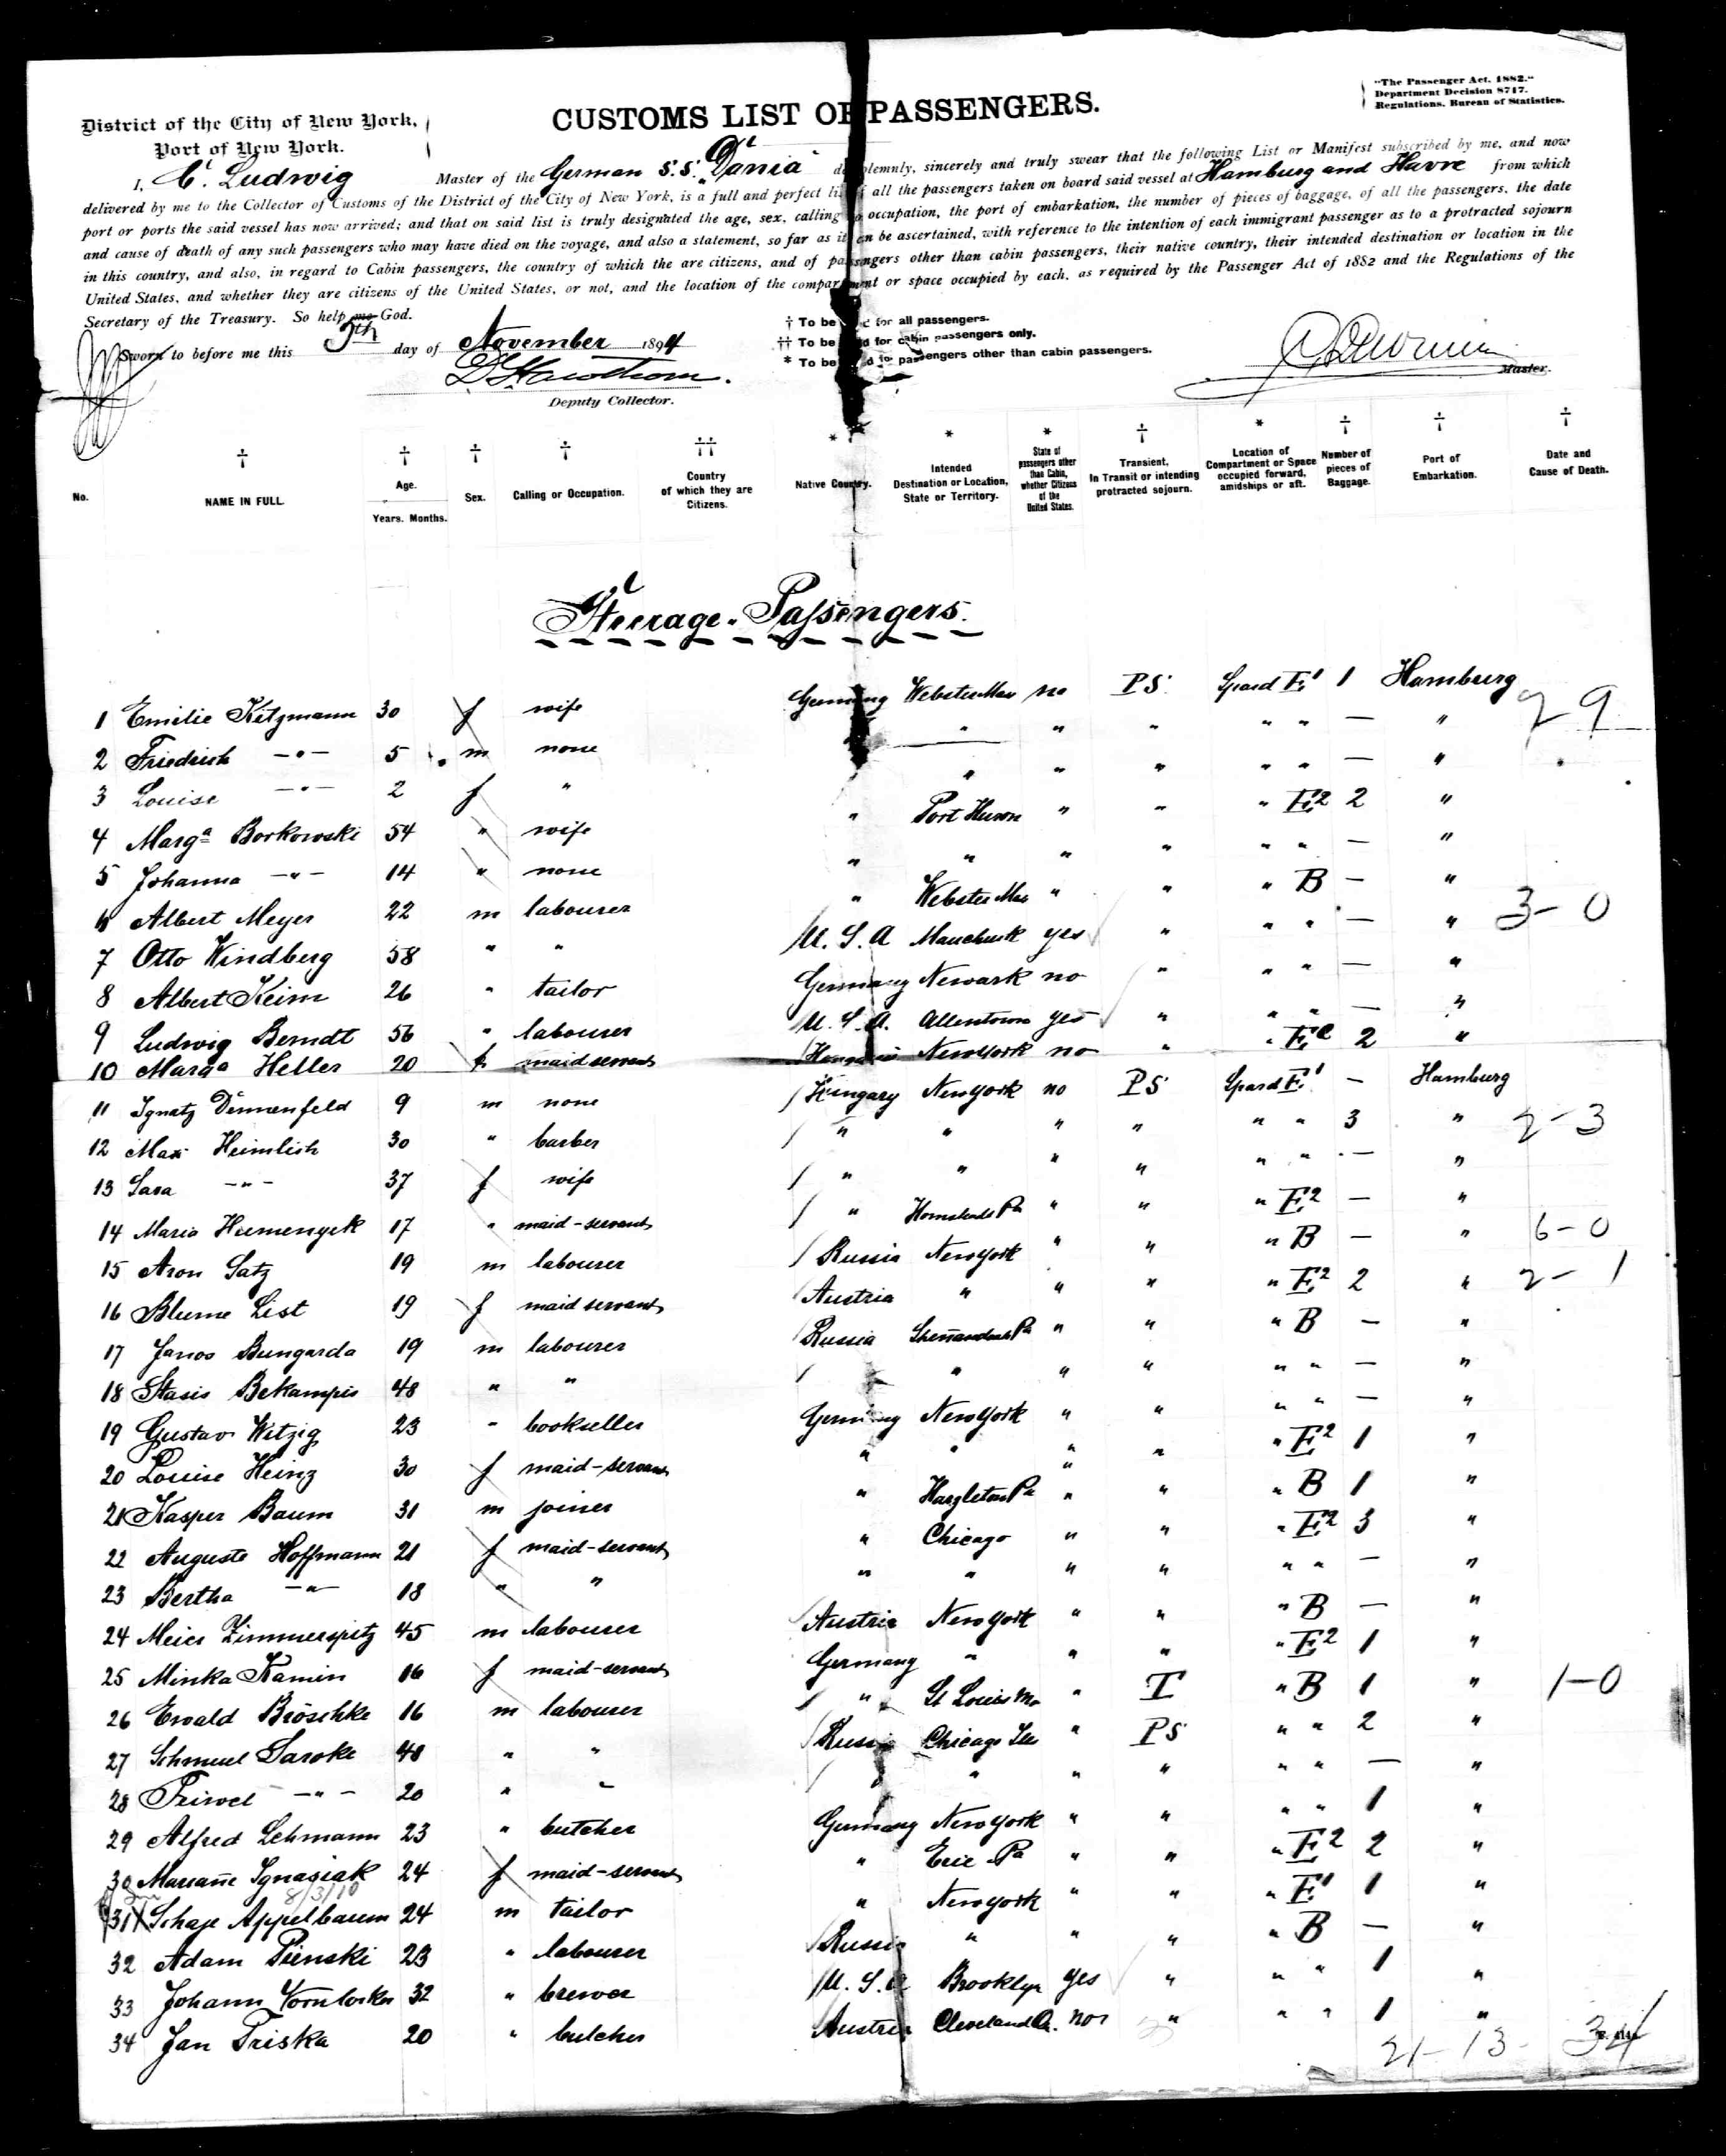 "The Passenger Act, 1882."
Department Decision 8717.
Regulations. Bureau of Statistics.
District of the City of New York,
Port of New York.
CUSTOMS LIST OF PASSENGERS.
I, C. Ludwig Master of the German S.S. "Dania" do solemnly, sincerely and truly swear that the following List or Manifest subscribed by me, and now
delivered by me to the Collector of Customs of the District of the City of New York, is a full and perfect list of all the passengers taken on board said vessel at Hamburg and Havre from which
port or ports the said vessel has now arrived; and that on said list is truly designated the age, sex, calling or occupation, the port of embarkation, the number of pieces of baggage, of all the passengers, the date
and cause of death of any such passengers who may have died on the voyage, and also a statement, so far as it can be ascertained, with reference to the intention of each immigrant passenger as to a protracted sojourn
in this country, and also, in regard to Cabin passengers, the country of which the are citizens, and of passengers other than cabin passengers, their native country, their intended destination or location in the
United States, and whether they are citizens of the United States, or not, and the location of the compartment or space occupied by each, as required by the Passenger Act of 1882 and the Regulations of the
Secretary of the Treasury. So help me God.
Sworn to before me this 5th day of November 1894
Deputy Collector.
† To be for all passengers.
†† To be for cabin passengers only.
* To be for passengers other than cabin passengers.
Master.
No. † NAME IN FULL † Age. Years. Months. † Sex. † Calling or Occupation. †† Country of which they are Citizens. * Native Country. * Intended Destination or Location, State or Territory. * State of passengers other than Cabin, whether Citizens of the United States. † Transient, In Transit or intending protracted sojourn. * Location of Compartment or Space occupied forward, amidships or aft. † Number of pieces of Baggage. † Port of Embarkation. † Date and Cause of Death.
Steerage-Passengers.
1 Emilie Kitzmann 30 f wife Germany Webster Mas no PS. Spard E1 1 Hamburg 2 9
2 Friedrich -"- 5 m none " " " " " — "
3 Louise -"- 2 f " " " " " " — "
4 Marga Borkowski 54 " wife " Port Huron " " " E2 2 "
5 Johanna -"- 14 " none " " " " " " — "
6 Albert Meyer 22 m labourer " Webster Mas " " " B — "
7 Otto Windberg 58 " " U.S.A Mauchunk yes " " " — " 3-0
8 Albert Keim 26 " tailor Germany Newark no " " " — "
9 Ludwig Berndt 56 " labourer U.S.A. Allentown yes " " " — "
10 Marga Heller 20 f maid servant New York no " " E2 2 "
11 Ignatz Dennenfeld 9 m none Hungary New York no PS Spard E1 — Hamburg
12 Max Heimlich 30 " barber " " " " " " 3 " 2-3
13 Sara -"- 37 f wife " " " " " " — "
14 Maria 17 " maid-servant " Homstead Pa " " " E2 — "
15 Aron Satz 19 m labourer Russia New York " " " B — " 6-0
16 Blume List 19 f maid servant Austria " " " " E2 2 " 2-1
17 Janos Bungarda 19 m labourer Russia Shenandoah Pa " " " B — "
18 Stasis Bekampis 48 " " " " " " " — "
19 Gustav Witzig 23 " bookseller Germany New York " " " " — "
20 Louise Heinz 30 f maid-servant " " " " " E2 1 "
21 Kasper Baum 31 m joiner " Hazleton Pa " " " B 1 "
22 Auguste Hoffmann 21 f maid-servant " Chicago " " " E2 3 "
23 Bertha -"- 18 " " " " " " " " — "
24 Meier Zimmerspitz 45 m labourer Austria New York " " " B — "
25 Minka Kamin 16 f maid-servant Germany " " " " E2 1 "
26 Ewald Bröschke 16 m labourer " St Louis Mo " T " B 1 " 1-0
27 Schmuel Saroke 48 " " Russia Chicago Ills " PS " " 2 "
28 Feiwel -"- 20 " " " " " " " — "
29 Alfred Lehmann 23 " butcher Germany New York " " " " 1 "
30 Marianne Ignasiak 24 f maid-servant " Erie Pa " " " E2 2 "
8/3/10
31 X Schaje Appelbaum 24 m tailor " New York " " " E1 1 "
32 Adam Pienski 23 " labourer Russia " " " " B — "
33 Johann 32 " brewer U.S.A Brooklyn yes " " " 1 "
34 Jan Triska 20 " butcher Austria Cleveland O. no " " " 1 "
21-13- 34